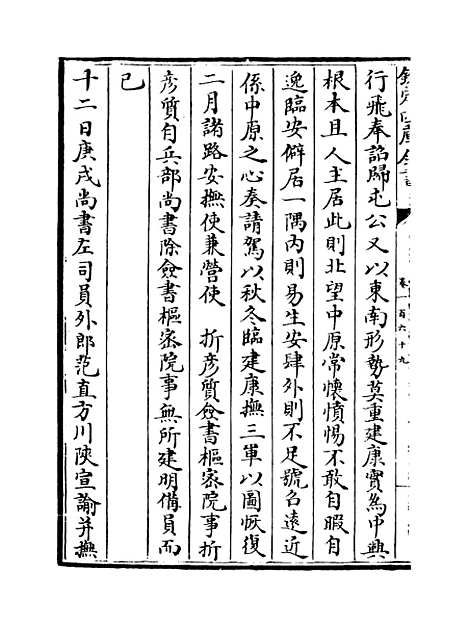 欽定四庫全書
卷一百六十九
行飛奉詔歸屯公又以東南形勢莫重建康實為中興
根本且人主居此則北望中原常懷憤惕不敢自暇自
逸臨安僻居一隅内則易生安肆外則不足號召遠近
係中原之心奏請駕以秋冬臨建康撫三軍以圖恢復
二月諸路安撫使兼營使　折彦質僉書樞宻院事折
彦質自兵部尚書除僉書樞宻院事無所建明備員而
已
十二日庚戌尚書左司員外郎范直方川陜宣諭并撫